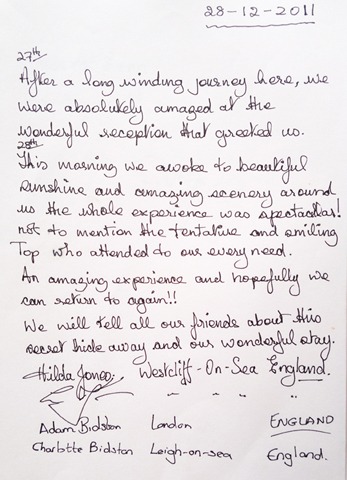 28-12-2011
27th
After a long winding journey here, we
were absolutely amazed at the
wonderful reception that greeted us.
28th
This morning we awoke to beautiful
sunshine and amazing scenery around
us the whole experience was spectacular!
not to mention the tentative and smiling
Top who attended to our every need.
An amazing experience and hopefully we
can return to again!!
We will tell all our friends about this
secret hide away and our wonderful stay.
Hilda Jones. Westcliff-On-Sea England.
" " " "
Adam Bidston London ENGLAND
Charlotte Bidston Leigh-on-sea England.